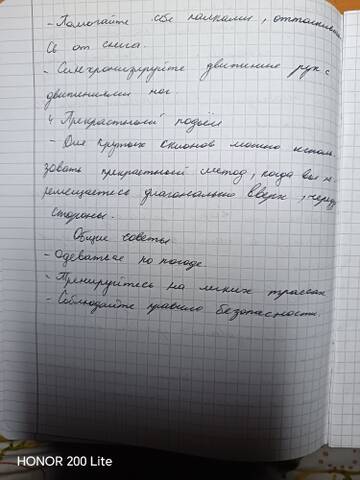 - Помогайте себе палками, отталкивая
сь от снега.
- Синхронизируйте движение рук с
движениями ног
4 Прекрастный подъем
- Для крутых склонов можно исполь
зовать прекрастный метод, когда вы пе
ремещаетесь диагонально вверх, череду
стороны.
Общие советы
- Одеваться по погоде
- Тренируйтесь на легких трассах
- Соблюдайте правило безопасности.
HONOR 200 Lite